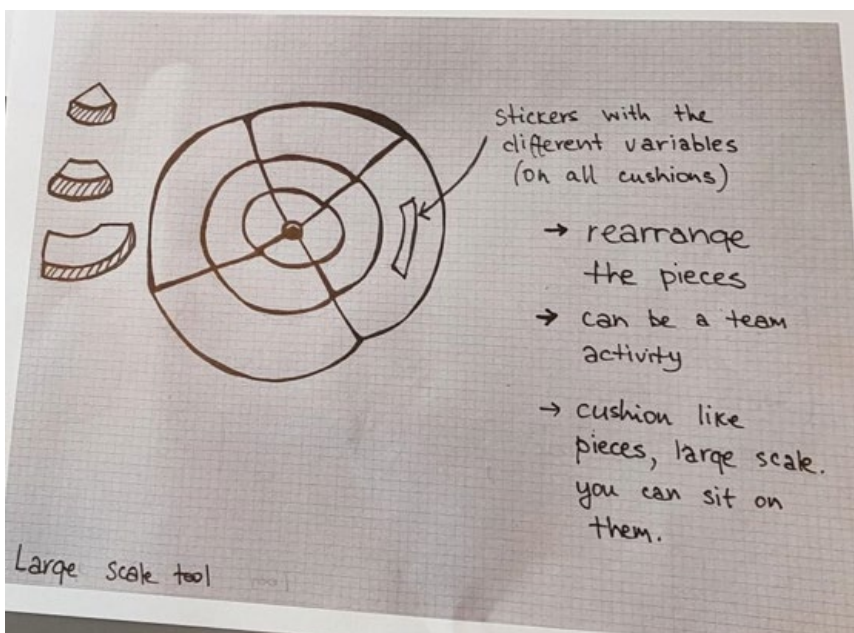 stickers with the
different variables
(on all cushions)
→ rearrange
the pieces
→ can be a team
activity
→ cushion like
pieces, large scale.
you can sit on
them.
Large scale tool